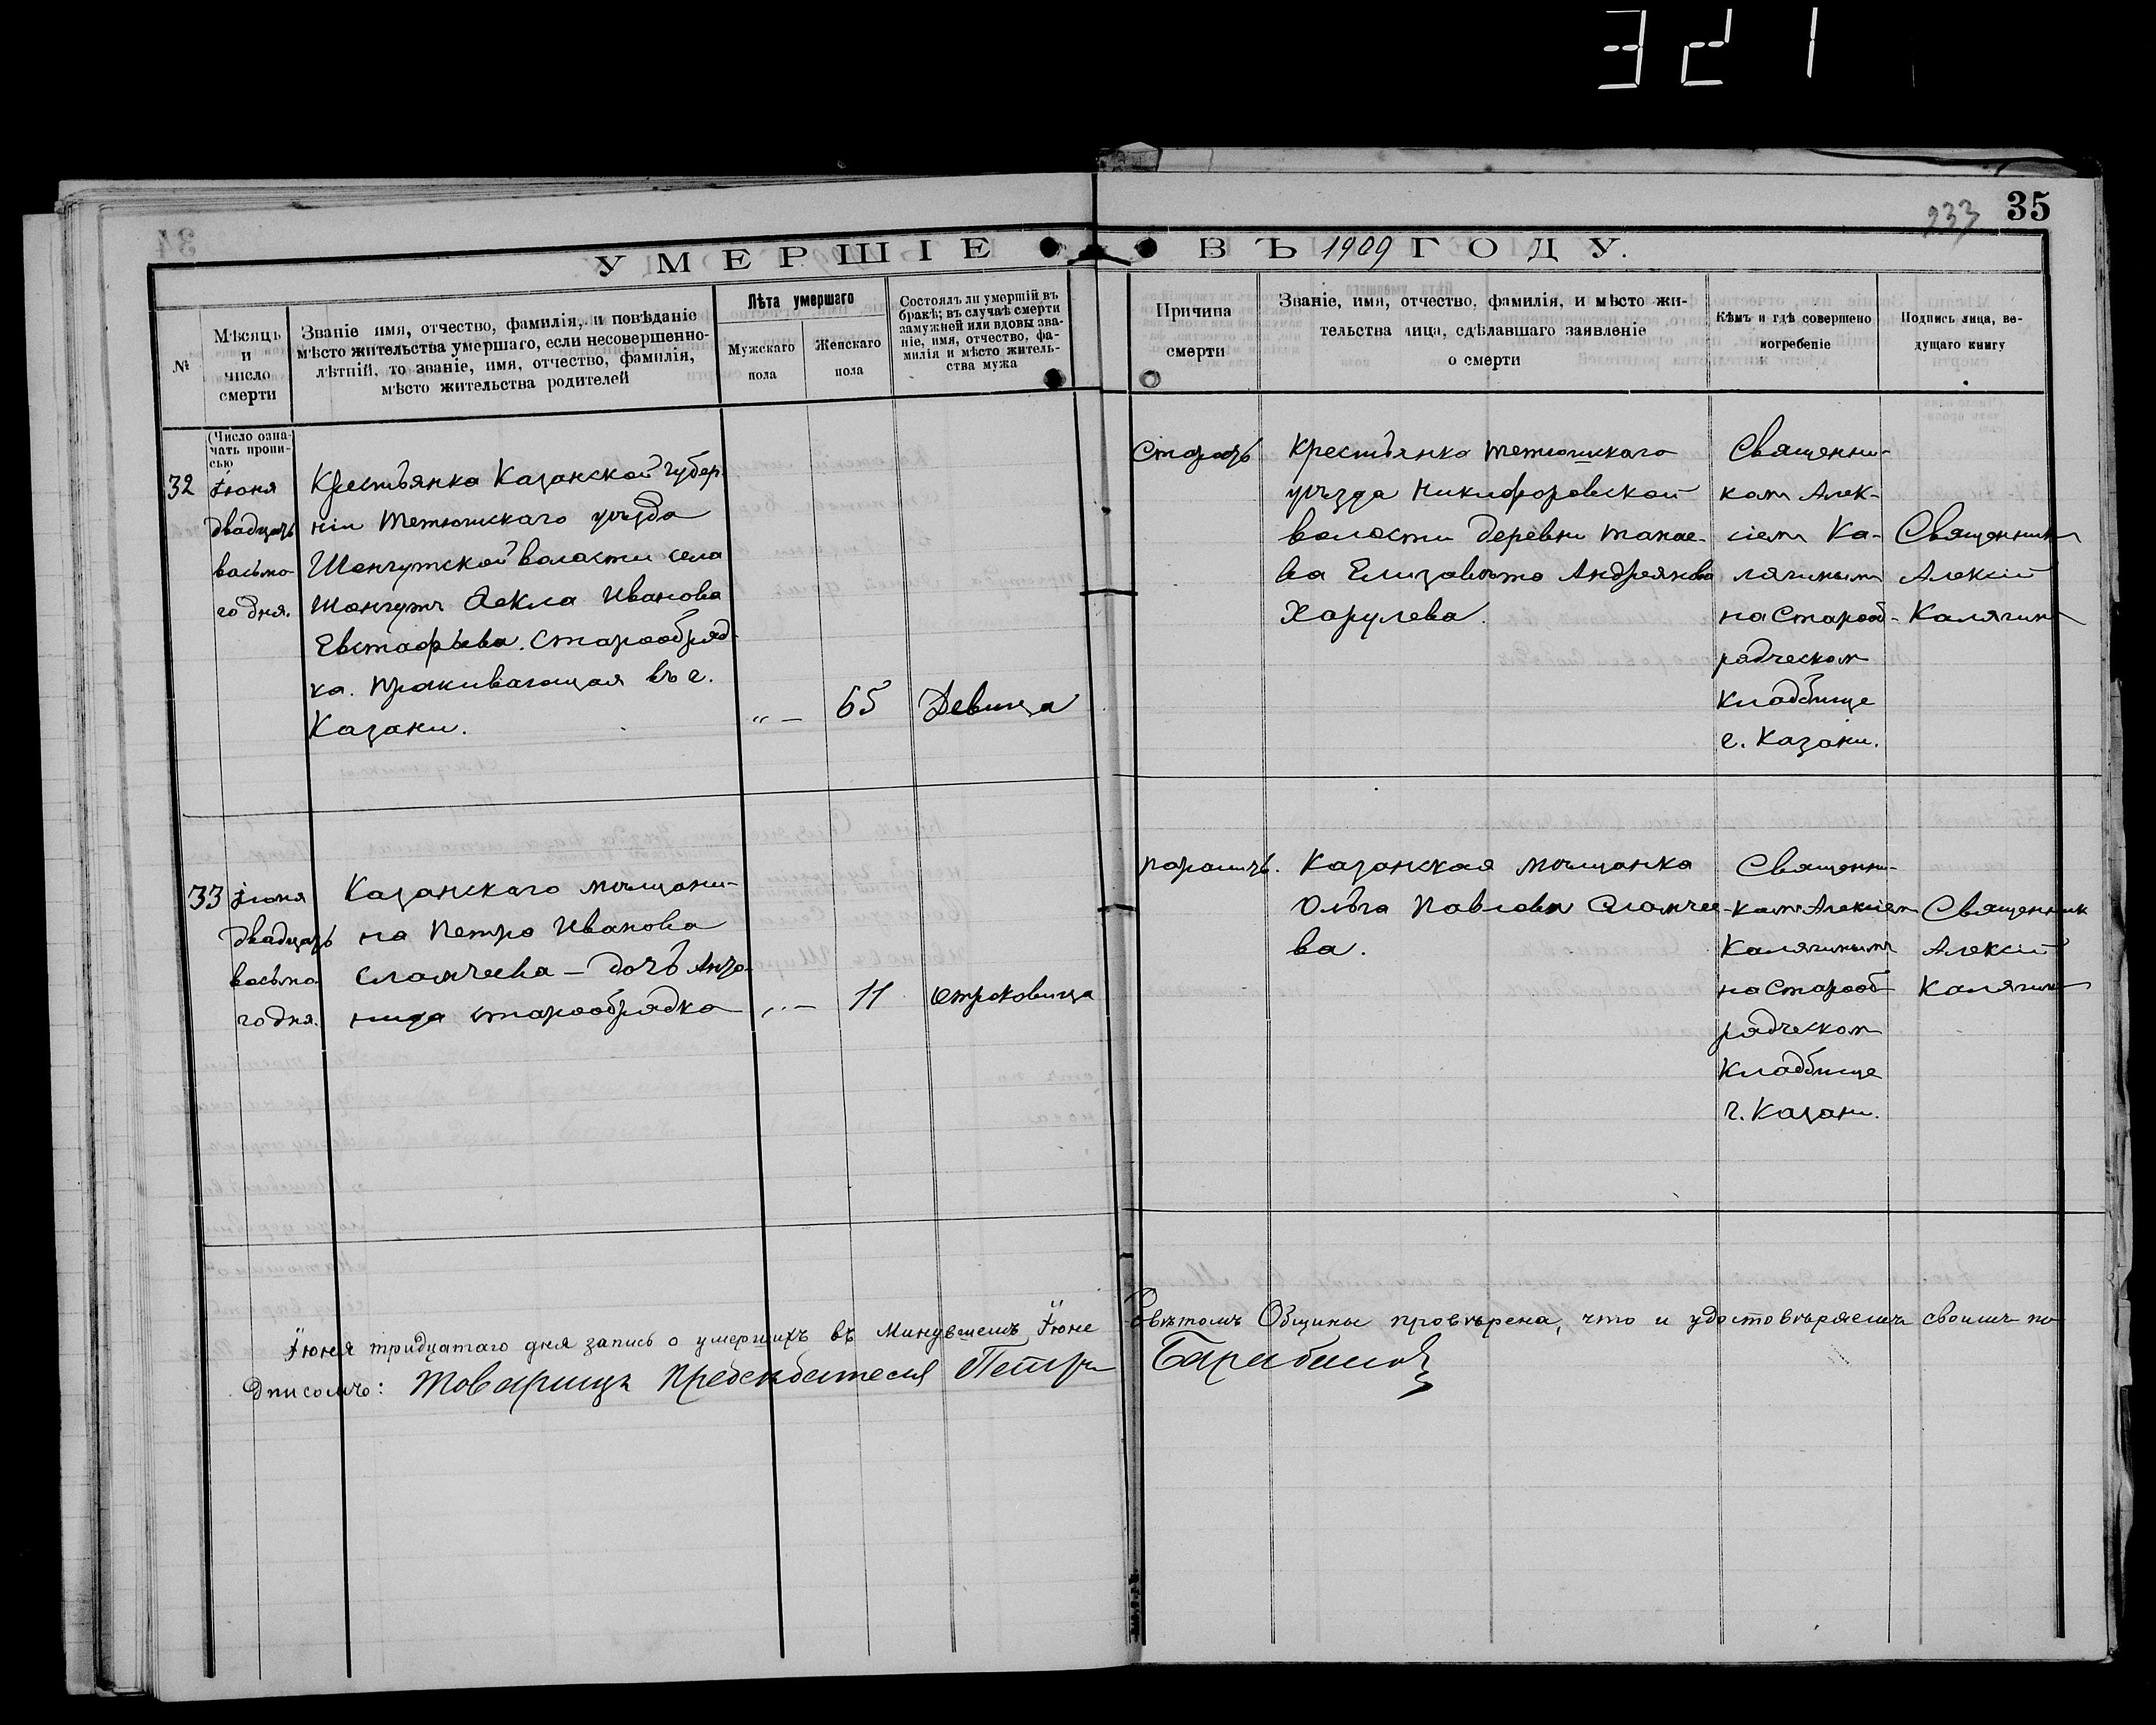 321
233 35
УМЕРШІЕ ВЪ 1909 ГОДУ.
№
Мѣсяцъ
и
число
смерти
Званіе имя, отчество, фамилія, и повѣданіе
мѣсто жительства умершаго, если несовершенно-
лѣтній, то званіе, имя, отчество, фамилія,
мѣсто жительства родителей
Лѣта умершаго
Мужскаго
пола
Женскаго
пола
Состоялъ ли умершій въ
бракѣ; въ случаѣ смерти
замужней или вдовы зва-
ніе, имя, отчество, фа-
милія и мѣсто житель-
ства мужа
Причина
смерти
Званіе, имя, отчество, фамилія, и мѣсто жи-
тельства лица, сдѣлавшаго заявленіе
о смерти
Кѣмъ и гдѣ совершено
погребеніе
Подпись лица, ве-
дущаго книгу
(Число озна-
чать пропи-
сью
32
Іюня
двадцать
восьмо-
го дня.
Крестьянка Казанской губер-
ніи Тетюшскаго уѣзда
Шонгутской волости села
Шонгутъ Ѳекла Иванова
Евстафьева. Старообряд-
ка. Проживающая въ г.
Казани.
„ —
65
Девица
Старость
Крестьянка Тетюшскаго
уѣзда Никифоровской
волости деревни Танае-
ва Елизавета Андреянова
Харулева.
Священни-
комъ Алек-
сіемъ Ка-
лягинымъ
на Старооб-
рядческомъ
Кладбище
г. Казани.
Священникъ
Алексій
Калягинъ
33
Іюня
двадцать
восьмо
го дня.
Казанскаго мѣщани-
на Петра Иванова
Сламчеева — дочь Анто-
нида старообрядка
„ —
11
Отроковица
параличъ.
Казанская мѣщанка
Ольга Павловна Сламчее-
ва.
Священни-
комъ Алексіемъ
Калягинымъ
на Старооб-
рядческомъ
Кладбище
г. Казани.
Священникъ
Алексій
Калягинъ
Іюня тридцатаго дня запись о умершихъ въ минувшемъ Іюне Совѣтомъ Общины провѣрена, что и удостовѣряемъ своимъ по
дписомъ: Товарищъ Председателя Петръ Барабанов